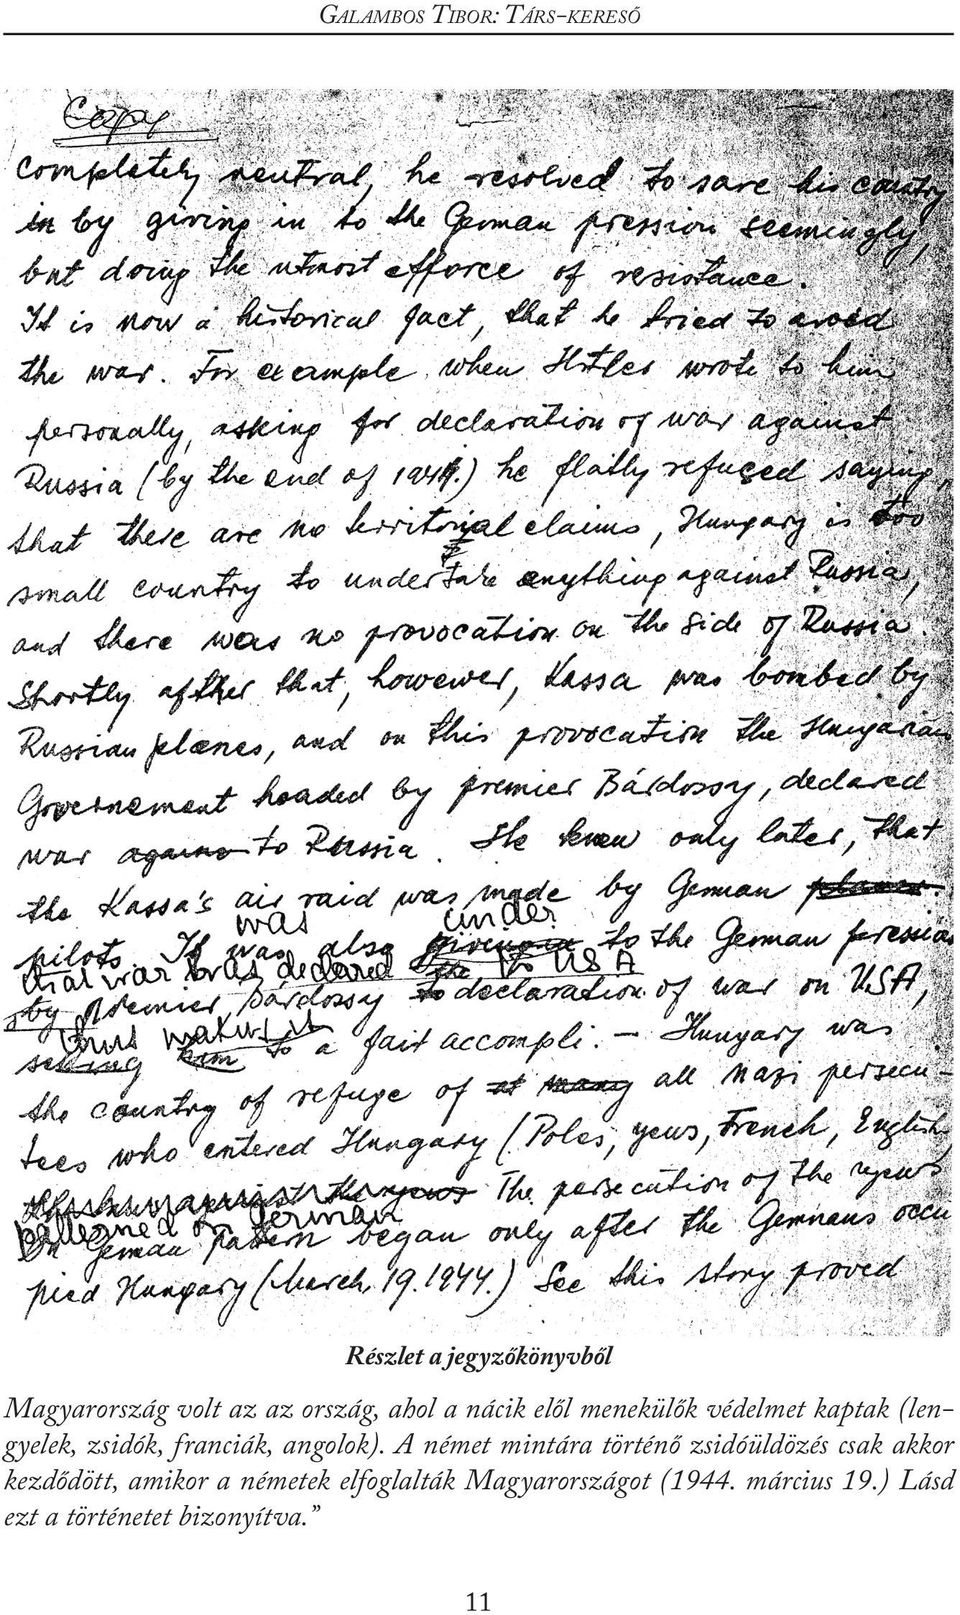 GALAMBOS TIBOR: TÁRS-KERESŐ
Copy
completely neutral, he resolved to save his country
in by giving in to the German pression seemingly,
but doing the utmost efforce of resistance.
It is now a historical fact, that he tried to avoid
the war. For example when Hitler wrote to him
personally, asking for declaration of war against
Russia (by the end of 1941.) he flatly refused saying,
that there are no territorial claims, Hungary is too
small country to undertake anything against Russia,
and there was no provocation on the side of Russia.
Shortly after that, however, Kassa was bombed by
Russian planes, and on this provocation the Hungarian
Governement headed by premier Bárdossy, declared
war against to Russia. He knew only later, that
the Kassa's air raid was made by German planes.
was under
pilots. It was also to the German pression
that war was declared to USA
by Premier Bárdossy to declaration of war on USA,
thus
seking him to a fait accompli. – Hungary was
the country of refuge of at many all nazi persecu-
tees who entered Hungary (Poles, yews, French, English,
the yews The persecution of the yews
patterned on German
on German pattern began only after the Germans occu
pied Hungary (March, 19. 1944.) See this story proved
Részlet a jegyzőkönyvből
Magyarország volt az az ország, ahol a nácik elől menekülők védelmet kaptak (len-
gyelek, zsidók, franciák, angolok). A német mintára történő zsidóüldözés csak akkor
kezdődött, amikor a németek elfoglalták Magyarországot (1944. március 19.) Lásd
ezt a történetet bizonyítva.”
11